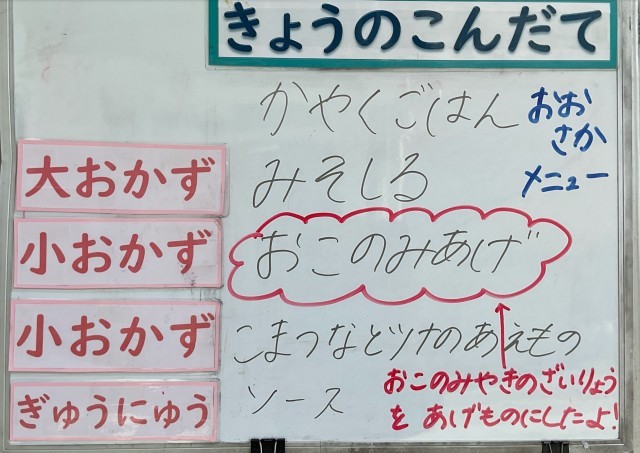 きょうのこんだて
かやくごはん
おおさか
メニュー
大おかず
みそしる
小おかず
おこのみあげ
小おかず
こまつなとツナのあえもの
おこのみやきのざいりょう
を あげものにしたよ!
ぎゅうにゅう
ソース